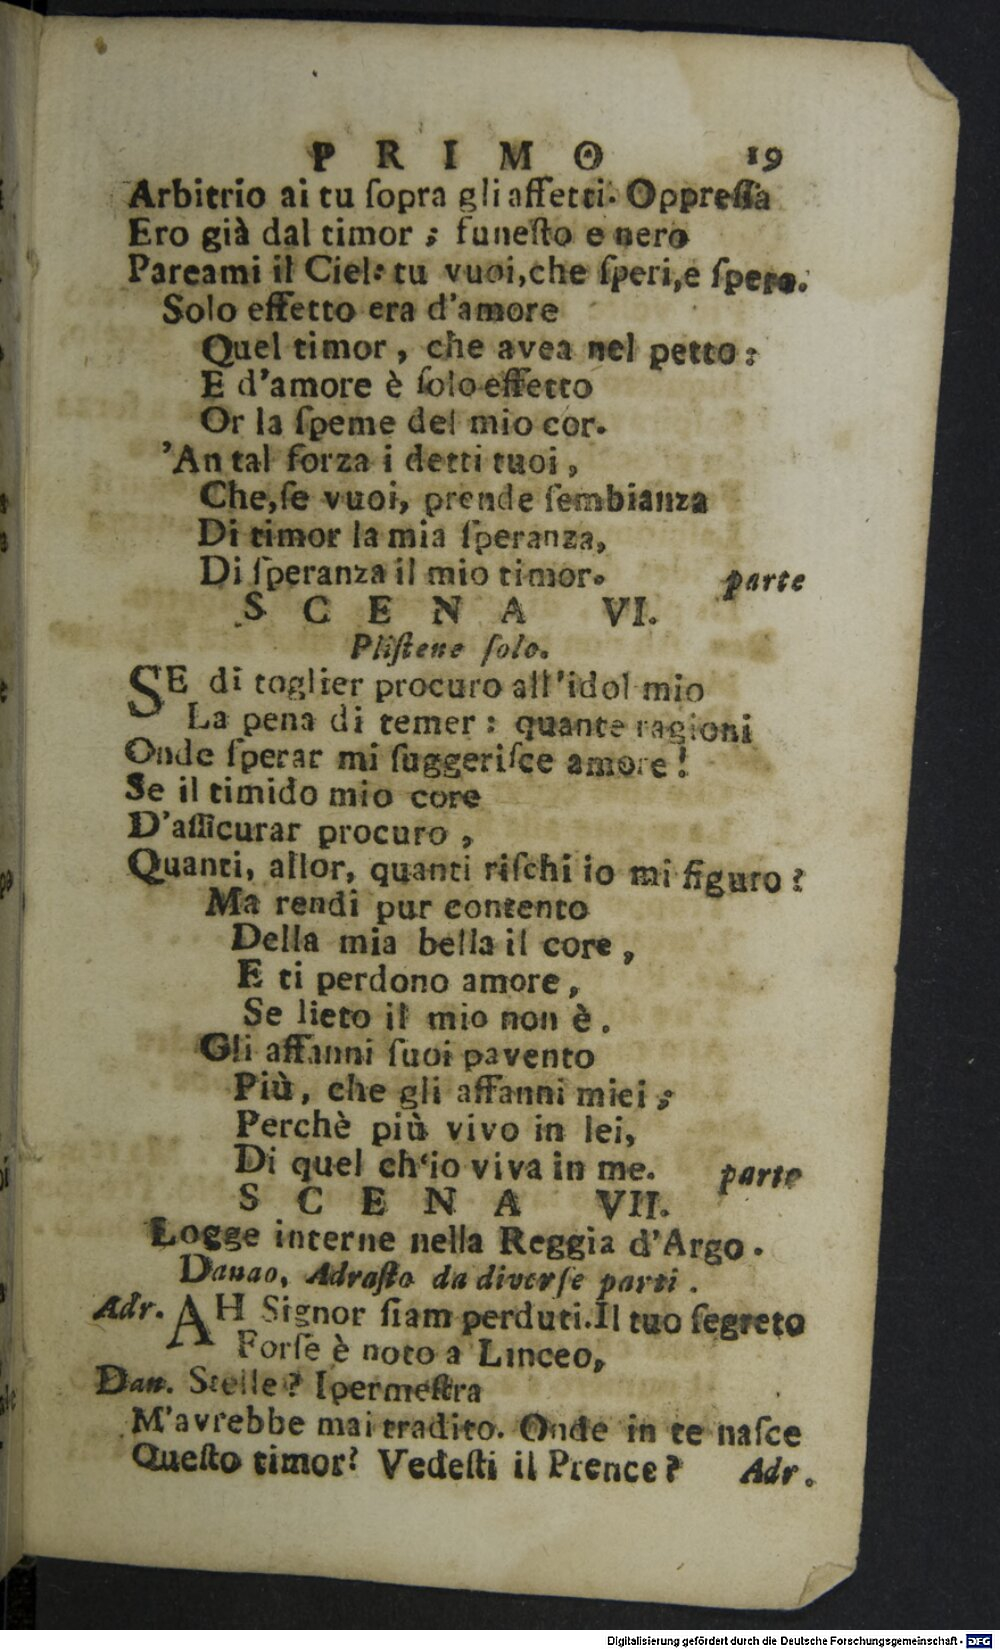 PRIMO 19
Arbitrio ai tu ſopra gli affetti. Oppreſſa
Ero già dal timor; funeſto e nero
Pareami il Ciel: tu vuoi, che ſperi, e ſpero.
Solo effetto era d'amore
Quel timor, che avea nel petto:
E d'amore è ſolo effetto
Or la ſpeme del mio cor.
'An tal forza i detti tuoi,
Che, ſe vuoi, prende ſembianza
Di timor la mia ſperanza,
Di ſperanza il mio timor. parte
SCENA VI.
Pliſtene ſolo.
SE di toglier procuro all'idol mio
La pena di temer: quante ragioni
Onde ſperar mi ſuggeriſce amore!
Se il timido mio core
D'aſſicurar procuro,
Quanti, allor, quanti riſchi io mi figuro?
Ma rendi pur contento
Della mia bella il core,
E ti perdono amore,
Se lieto il mio non è.
Gli affanni ſuoi pavento
Più, che gli affanni miei;
Perchè più vivo in lei,
Di quel ch‘io viva in me. parte
SCENA VII.
Logge interne nella Reggia d'Argo.
Danao, Adraſto da diverſe parti.
Adr. AH Signor ſiam perduti. Il tuo ſegreto
Forſe è noto a Linceo,
Dan. Stelle? Ipermeſtra
M'avrebbe mai tradito. Onde in te naſce
Queſto timor? Vedeſti il Prence? Adr.
Digitalisierung gefördert durch die Deutsche Forschungsgemeinschaft - DFG